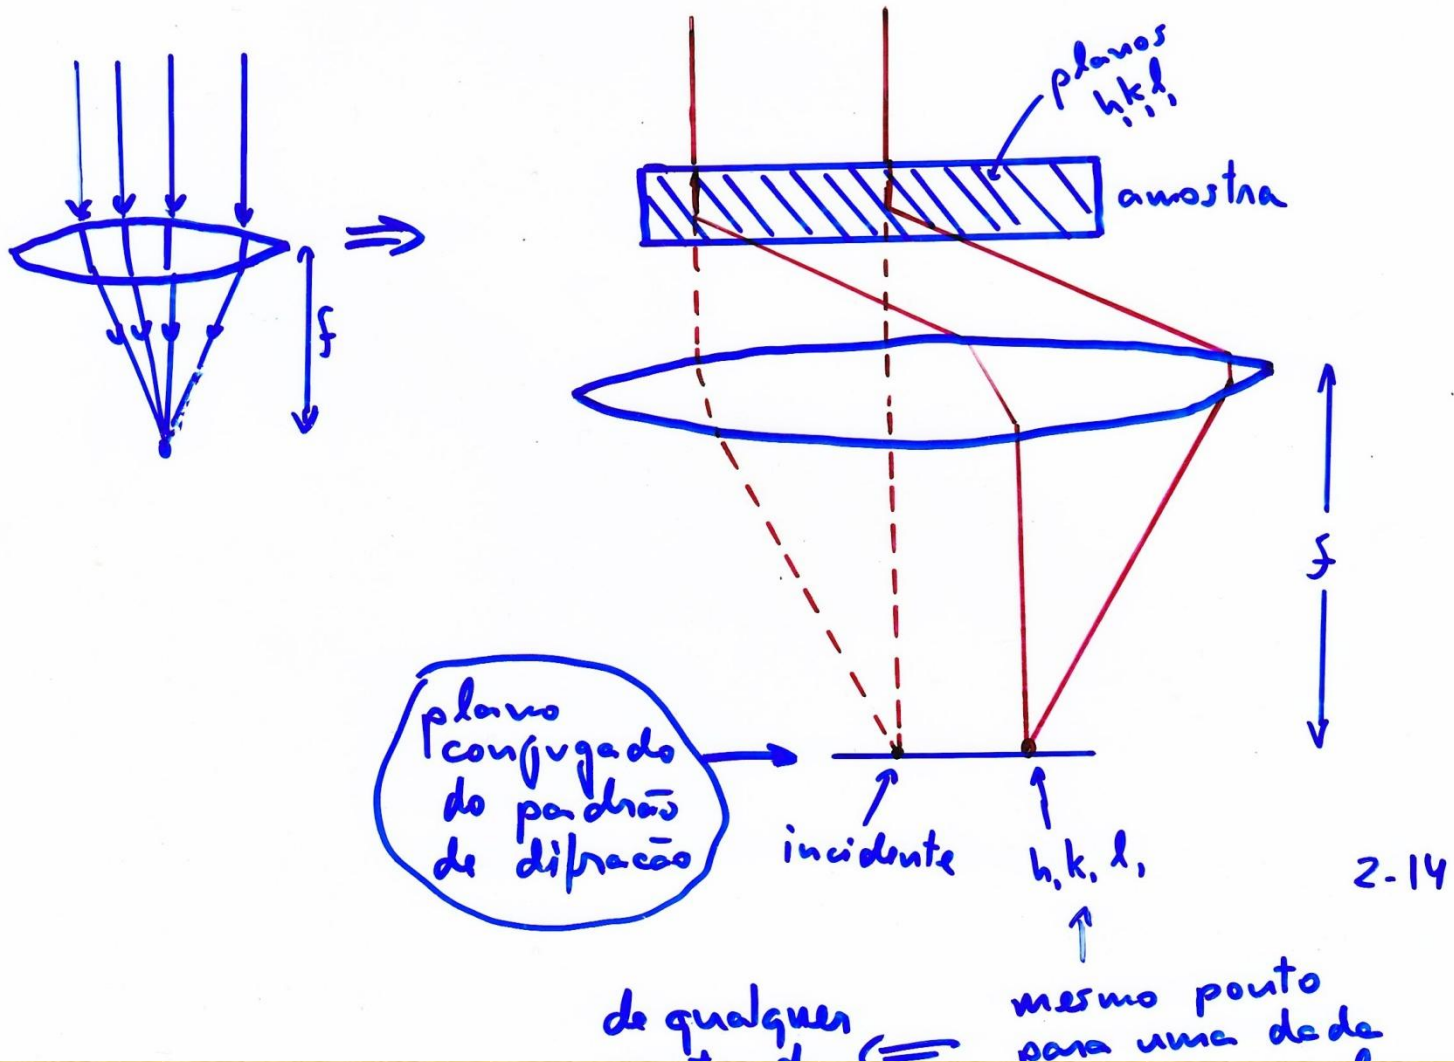 f
planos
h₁k₁l₁
amostra
f
plano
conjugado
do padrão
de difração
incidente
h₁ k₁ l₁
2-14
de qualquer
mesmo ponto
para uma dada